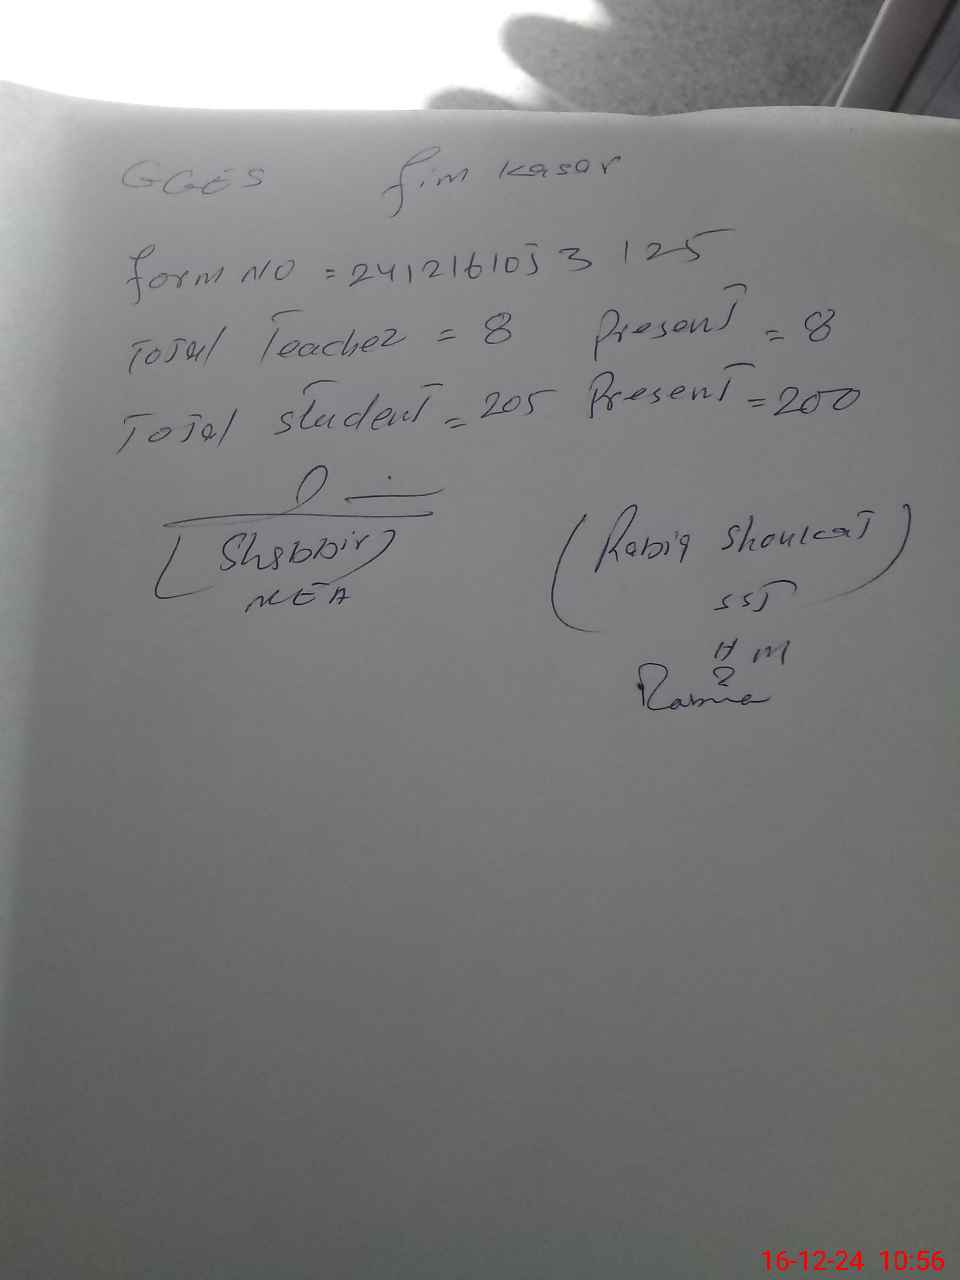 GGES fim Kasar
form NO = 24121610553125
Total Teacher = 8 Present = 8
Total student = 205 Present = 200
(Shabbir)
MEA
(Rabia Shoukat)
SST
HM
Rabia
16-12-24 10:56